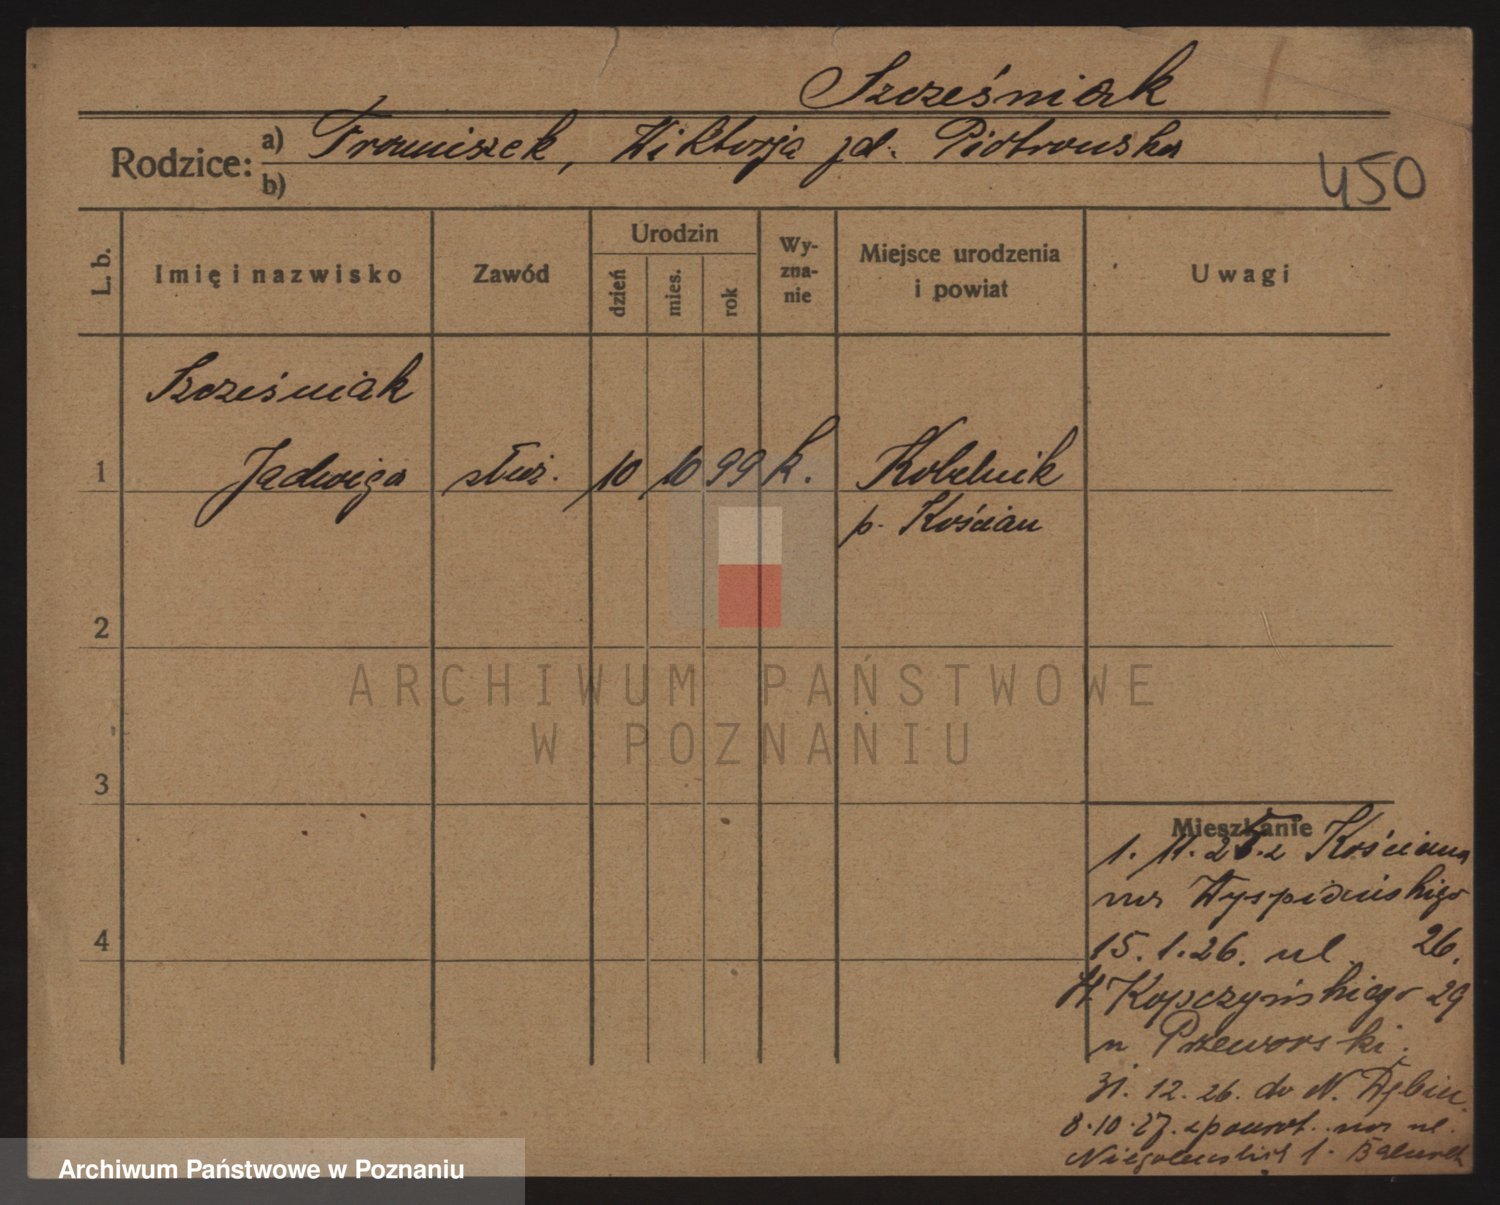 Szcześniak
Rodzice: a) Franciszek, Wiktorja zd. Piotrowska
b)
450
L. b.
Imię i nazwisko
Zawód
Urodzin
dzień
mies.
rok
Wy-
zna-
nie
Miejsce urodzenia
i powiat
Uwagi
Szcześniak
1 Jadwiga służ. 10 10 99 k. Kobelnik
p. Kościan
2
ARCHIWUM PAŃSTWOWE
W POZNANIU
3
Mieszkanie
1. 11. 25. z Kościana
na Wyspiańskiego
4
15. 1. 26. ul. 26.
Kopczyńskiego 29
n Przeworski.
31. 12. 26. do N. Dębiec
8.10.27. spowrot. na ul.
Niegolewskich 1.
Archiwum Państwowe w Poznaniu